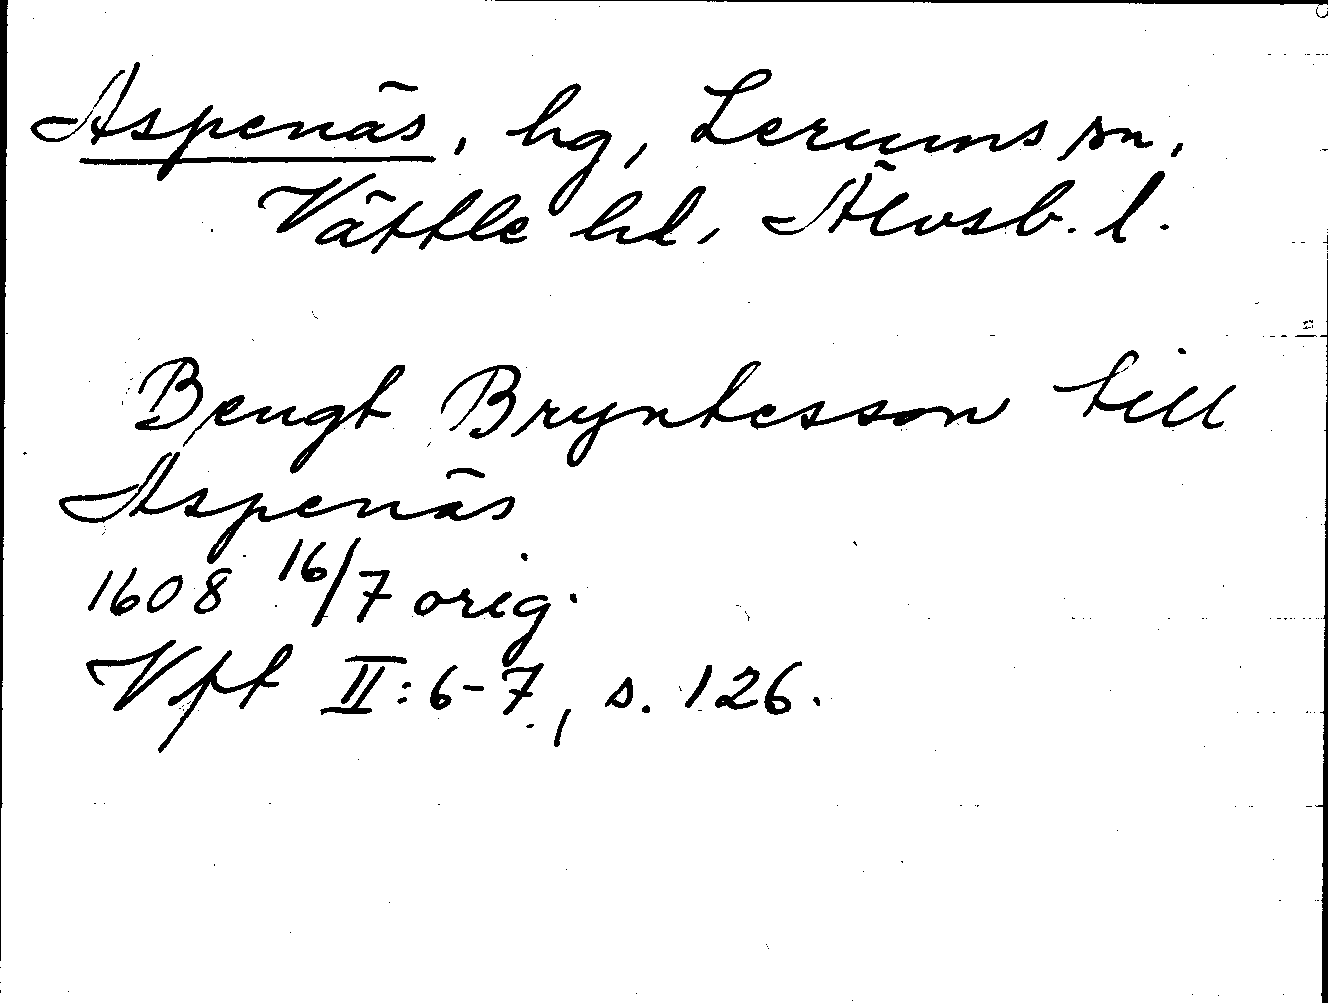 Aspenäs, hg, Lerums sn,
Vättle hd, Älvsb. l.
Bengt Bryntesson till
Aspenäs
1608 16/7 orig.
Vft II:6-7, s. 126.